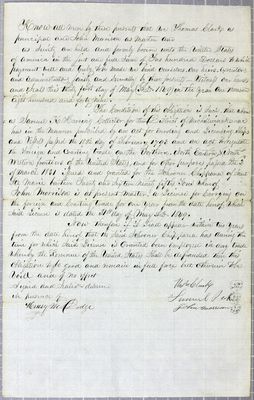 Know all men by these presents that we Thomas Clark as
principal and John Manson as Master are
as surety are held and firmly bound unto the United States
of America in the just and full sum of One hundred Dollars to which
payment well and truly to be made we bind ourselves our heirs, executors
and administrators jointly and severally by these presents. Witness our hands
and Seals this first day of May in the year One thousand
eight hundred and forty nine.
The Condition of this obligation is such that
as Samuel K. Collector for the District of Michilimackinac
has in the manner prescribed by an act for enrolling and Licensing ships
and vessels passed the 18th day of February 1793 and an act to regulate
the foreign and Coasting trade on the Northern, North Eastern & North
Western frontiers of the United States, and for other purposes passed the 2
of March 1831 issued and granted for the Schooner Chippewa of Sault
Ste Marie burthen
John Morrison is at present Master, a License for carrying on
the foreign and Coasting trade for one year from the date hereof which
said License is dated the 1st day of May 1849.
Now therefore if it shall appear within two years
from the date hereof that the said Schooner Chippewa has during the
time for which said License is Granted been employed in any trade
whereby the Revenue of the United States shall be defrauded then this
obligation to be good and remain in full force but otherwise to be
void and of no effect
Signed and Sealed & delivered
in the presence of
Henry M. Dodge
Thos Clark
Samuel
John Morrison